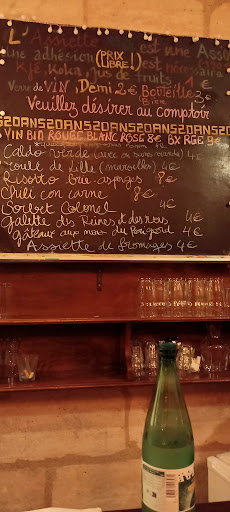 L'Assiette est une Asso
(PRIX LIBRE!)
une adhésion est nécessaire
Kfé, Koka, jus de fruits 1€
Verre de VIN, Demi 2€ Bouteille Bière 3€
Veuillez désirer au comptoir
S20ANS20ANS20ANS20ANS20ANS
VIN BIO ROUGE BLANC ROSÉ 8€ BX RGE 9€
Caldo verde (avec ou sans viande) 4€
Boule de Lille (maroilles) 4€
Risotto brie-asperges 8€
Chili con carne 8€
Sorbet Colonel 4€
Galette des Reines et des rois 4€
Gâteaux aux noix du Périgord 4€
Assiette de fromages 4€